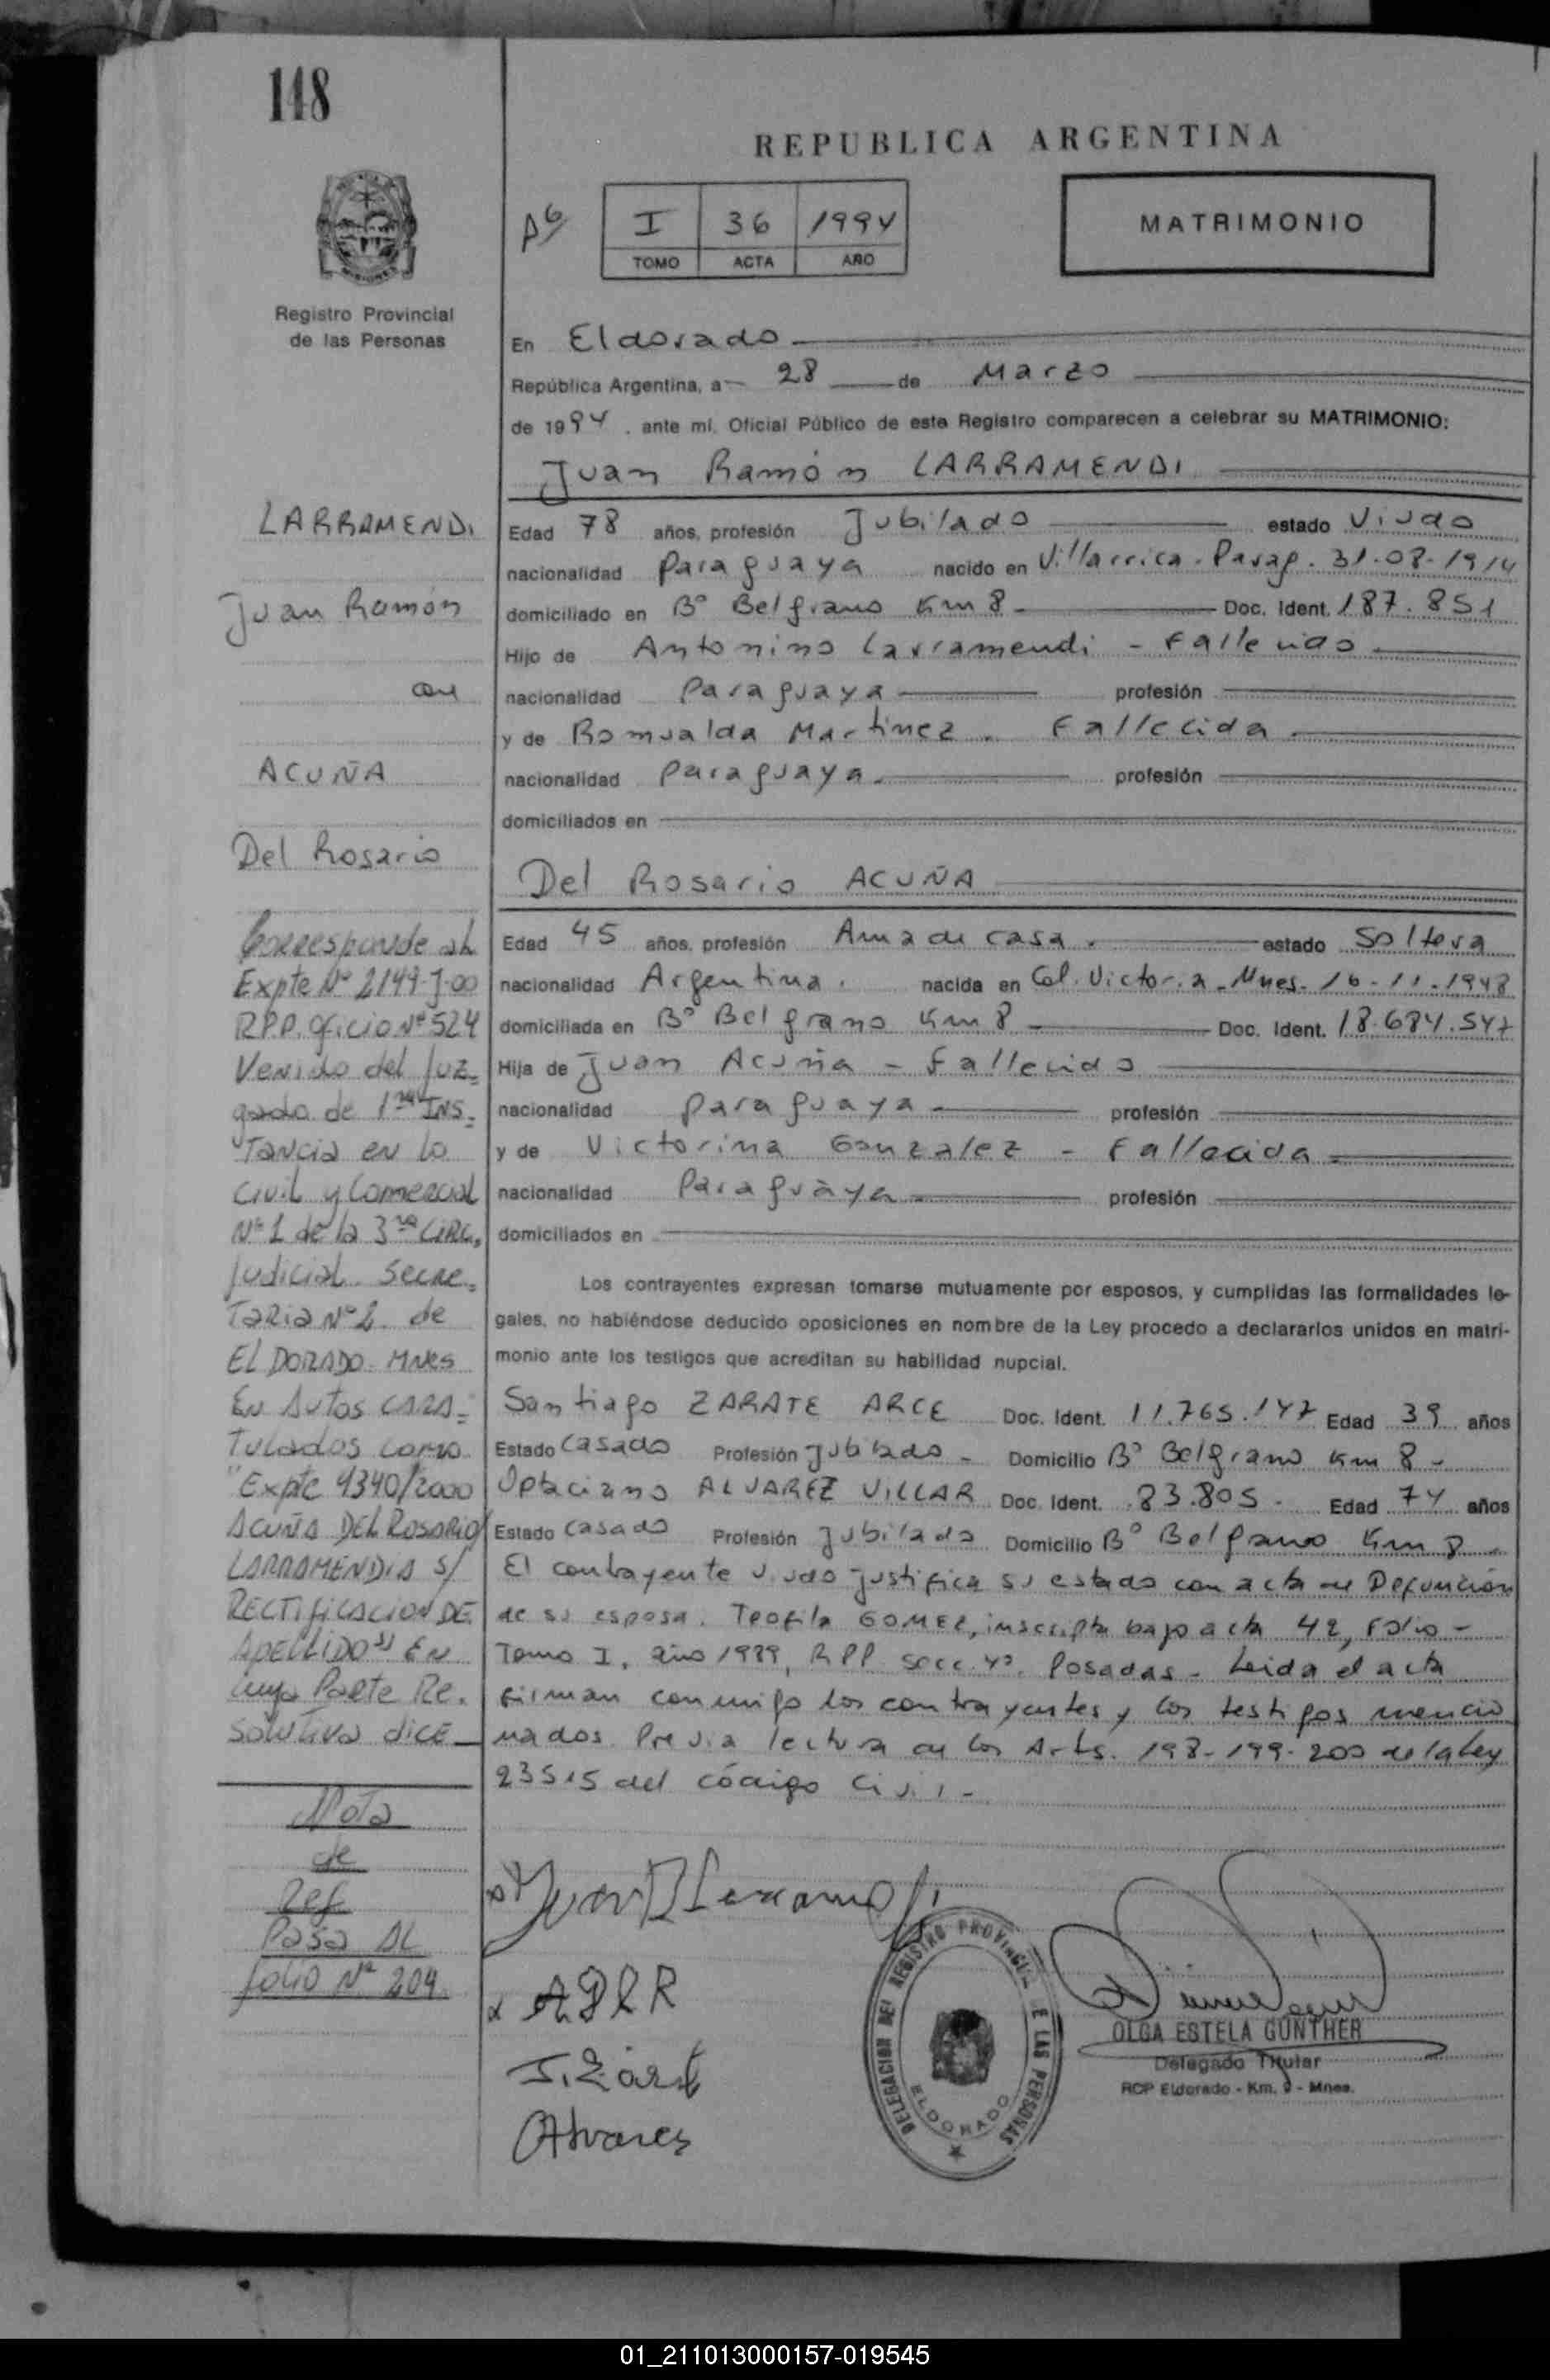 118
REPUBLICA ARGENTINA
I 36 1994
TOMO ACTA AÑO
MATRIMONIO
MISIONES
Registro Provincial
de las Personas
En Eldorado
República Argentina, a 28 de Marzo
de 1994, ante mí, Oficial Público de este Registro comparecen a celebrar su MATRIMONIO:
Juan Ramón LARRAMENDI
Edad 78 años, profesión Jubilado estado Viudo
nacionalidad Paraguaya nacido en Villarrica - Parag. 31-08-1914
domiciliado en Bº Belgrano Km 8 - Doc. Ident. 187.851
Hijo de Antonino Larramendi - Fallecido
nacionalidad Paraguaya profesión
y de Romualda Martinez - Fallecida
nacionalidad Paraguaya - profesión
domiciliados en
Del Rosario ACUÑA
Edad 45 años, profesión Ama de casa. estado Soltera
nacionalidad Argentina. nacida en Col. Victoria - Mnes - 16-11-1948
domiciliada en Bº Belgrano Km 8 - Doc. Ident. 18.684.547
Hija de Juan Acuña - Fallecido
nacionalidad Paraguaya - profesión
y de Victorina Gonzalez - Fallecida -
nacionalidad Paraguaya - profesión
domiciliados en
Los contrayentes expresan tomarse mutuamente por esposos, y cumplidas las formalidades le-
gales, no habiéndose deducido oposiciones en nombre de la Ley procedo a declararlos unidos en matri-
monio ante los testigos que acreditan su habilidad nupcial.
Santiago ZARATE ARCE Doc. Ident. 11.765.147 Edad 39 años
Estado Casado Profesión Jubilado - Domicilio Bº Belgrano Km 8 -
Optaciano ALVAREZ VILLAR Doc. Ident. 83.805 - Edad 74 años
Estado Casado Profesión Jubilado Domicilio Bº Belgrano Km 8 -
El contrayente viudo justifica su estado con acta de Defunción
de su esposa. Teofila GOMEZ, inscripta bajo acta 42, Folio -
Tomo I, año 1989, RPP secc. 4º. Posadas - Leida el acta
firman conmigo los contrayentes y los testigos mencio
nados. Previa lectura de los Arts. 198-199-200 de la Ley
23515 del código Civil -
LARRAMENDI
Juan Ramón
con
ACUÑA
Del Rosario
Corresponde al
Expte Nº 2149-J-00
R.P.P. oficio Nº 524
Venido del Juz=
gado de 1ra INS=
Tancia en lo
Civil y Comercial
Nº 1 de la 3ra CIRC,
Judicial Secre=
Taria Nº 2 de
EL DORADO - MNES
En Autos CARA=
Tulados como
"Expte 4340/2000
ACUÑA DEL ROSARIO/
LARRAMENDIA S/
RECTIFICACION DE
APELLIDO" EN
Cuya Parte Re.
solutiva dice
Nota
de
Ref
Pasa AL
folio Nº 204
ADLR
S. Zárate
Alvares
DELEGACION DEL REGISTRO PROVINCIAL DE LAS PERSONAS
ELDORADO
OLGA ESTELA GUNTHER
Delegado Titular
RCP Eldorado - Km. 9 - Mnes.
01_211013000157-019545